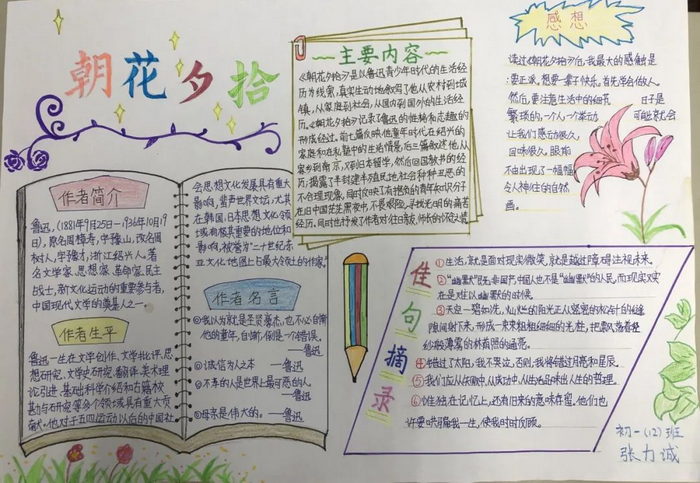 朝花夕拾
作者简介
鲁迅,(1881年9月25日—1936年10月19
日),原名周樟寿,字豫山,改名周
树人,字豫才,浙江绍兴人。著
名文学家、思想家、革命家、民主
战士,新文化运动的重要参与者,
中国现代文学的奠基人之一。
作者生平
鲁迅一生在文学创作、文学批评、思
想研究、文学史研究、翻译、美术理
论引进、基础科学介绍和古籍校
勘与研究等多个领域具有重大贡
献。他对于五四运动以后的中国社
会思想文化发展具有重大
影响,蜚声世界文坛,尤其
在韩国、日本思想文化领
域有极其重要的地位和
影响,被誉为“二十世纪东
亚文化地图上占最大领土的作家”
作者名言
①我以为就是圣贤豪杰,也不必自惭
他的童年,自惭,倒是一个错误。
—鲁迅
②诚信为人之本 —鲁迅
③不孝的人是世界上最可恶的人。
—鲁迅
④母亲是伟大的。—鲁迅
主要内容
《朝花夕拾》是以鲁迅青少年时代的生活经
历为线索,真实生动地叙写了他从农村到城
镇,从家庭到社会,从国内到国外的生活经
历。《朝花夕拾》记录了鲁迅的性格和志趣的
形成经过。前七篇反映他童年时代在绍兴的
家庭和在私塾中的生活情景,后三篇叙述他从
家乡到南京,又到日本留学,然后回国教书的经
历;揭露了半封建半殖民地社会种种丑恶的
不合理现象,同时反映了有抱负的青年知识分子
在旧中国茫茫黑夜中,不畏艰险,寻找光明的
经历,同时也抒发了作者对往日亲友、师长的怀念之情
感想
读过《朝花夕拾》后,我最大的感触是:
要正派,想要一辈子快乐。首先学会做人。
然后,要注意生活中的细节 日子是
繁琐的,一个人一个举动 可能就会
让我们感动很久,
回味很久,眼前
不由出现了一幅幅
令人神往的自然
画。
佳句摘录
①生活,就是面对现实微笑,就是越过障碍注视未来。
②“幽默”既非国产,中国人也不是“幽默”的人民,而现实又实
在是难以幽默的时候。
③天空一碧如洗,灿烂的阳光正从密密的松针的缝
隙间射下来,形成一束束粗粗细细的光柱,把飘荡着轻
纱般薄雾的林荫照的通亮。
④错过了太阳,我不哭泣,否则,我将错过月亮和星辰。
⑤我们应从失败中,从成功中,从生活品味出人生的哲理。
⑥惟独在记忆上,还有旧来的意味存留。他们也
许要哄骗我一生,使我时时反顾。
初一(12)班
张力诚